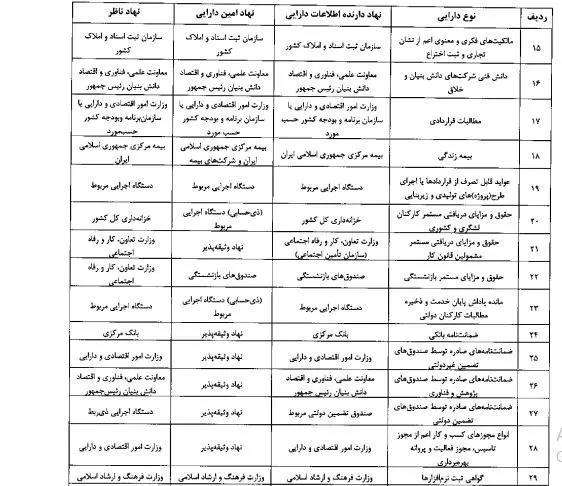 ردیف نوع دارایی نهاد دارنده اطلاعات دارایی نهاد امین دارایی نهاد ناظر
۱۵ مالکیت‌های فکری و معنوی اعم از نشان تجاری و ثبت اختراع سازمان ثبت اسناد و املاک کشور سازمان ثبت اسناد و املاک کشور سازمان ثبت اسناد و املاک کشور
۱۶ دانش فنی شرکت‌های دانش بنیان و خلاق معاونت علمی، فناوری و اقتصاد دانش بنیان رئیس جمهور معاونت علمی، فناوری و اقتصاد دانش بنیان رئیس جمهور معاونت علمی، فناوری و اقتصاد دانش بنیان رئیس جمهور
۱۷ مطالبات قراردادی وزارت امور اقتصادی و دارایی یا سازمان برنامه و بودجه کشور حسب مورد وزارت امور اقتصادی و دارایی یا سازمان برنامه و بودجه کشور حسب مورد وزارت امور اقتصادی و دارایی یا سازمان‌برنامه وبودجه کشور حسب‌مورد
۱۸ بیمه زندگی بیمه مرکزی جمهوری اسلامی ایران بیمه مرکزی جمهوری اسلامی ایران و شرکت‌های بیمه بیمه مرکزی جمهوری اسلامی ایران
۱۹ عواید قابل تصرف از قراردادها یا اجرای طرح(پروژه)های تولیدی و زیربنایی دستگاه اجرایی مربوط دستگاه اجرایی مربوط دستگاه اجرایی مربوط
۲۰ حقوق و مزایای دریافتی مستمر کارکنان لشگری و کشوری خزانه‌داری کل کشور (ذی‌حسابی) دستگاه اجرایی مربوط خزانه‌داری کل کشور
۲۱ حقوق و مزایای دریافتی مستمر مشمولین قانون کار وزارت تعاون، کار و رفاه اجتماعی (سازمان تأمین اجتماعی) نهاد وثیقه‌پذیر وزارت تعاون، کار و رفاه اجتماعی
۲۲ حقوق و مزایای مستمر بازنشستگی صندوق‌های بازنشستگی صندوق‌های بازنشستگی وزارت تعاون، کار و رفاه اجتماعی
۲۳ مانده پاداش پایان خدمت و ذخیره مطالبات کارکنان دولتی دستگاه اجرایی مربوط (ذی‌حسابی) دستگاه اجرایی مربوط دستگاه اجرایی مربوط
۲۴ ضمانت‌نامه بانکی بانک مرکزی نهاد وثیقه‌پذیر بانک مرکزی
۲۵ ضمانت‌نامه‌های صادره توسط صندوق‌های تضمین غیردولتی وزارت امور اقتصادی و دارایی نهاد وثیقه‌پذیر وزارت امور اقتصادی و دارایی
۲۶ ضمانت‌نامه‌های صادره توسط صندوق‌های پژوهش و فناوری معاونت علمی، فناوری و اقتصاد دانش بنیان رئیس جمهور نهاد وثیقه‌پذیر معاونت علمی، فناوری و اقتصاد دانش بنیان رئیس‌جمهور
۲۷ ضمانت‌نامه‌های صادره توسط صندوق‌های تضمین دولتی صندوق تضمین دولتی مربوط نهاد وثیقه‌پذیر دستگاه اجرایی ذی‌ربط
۲۸ انواع مجوزهای کسب و کار اعم از مجوز تاسیس، مجوز فعالیت و پروانه بهره‌برداری وزارت امور اقتصادی و دارایی نهاد وثیقه‌پذیر وزارت امور اقتصادی و دارایی
۲۹ گواهی ثبت نرم‌افزارها وزارت فرهنگ و ارشاد اسلامی وزارت فرهنگ و ارشاد اسلامی وزارت فرهنگ و ارشاد اسلامی